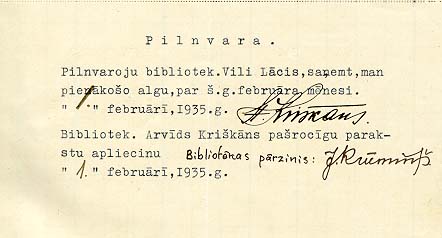 Pilnvara.
Pilnvaroju bibliotek.Vili Lācis,saņemt,man
pienākošo algu,par š.g.februāra mēnesi.
" 1." februārī,1935.g. A Kriškāns.
Bibliotek. Arvīds Kriškāns pašrocīgu parak-
stu apliecinu Bibliotēkas pārzinis:
" 1." februārī,1935.g.